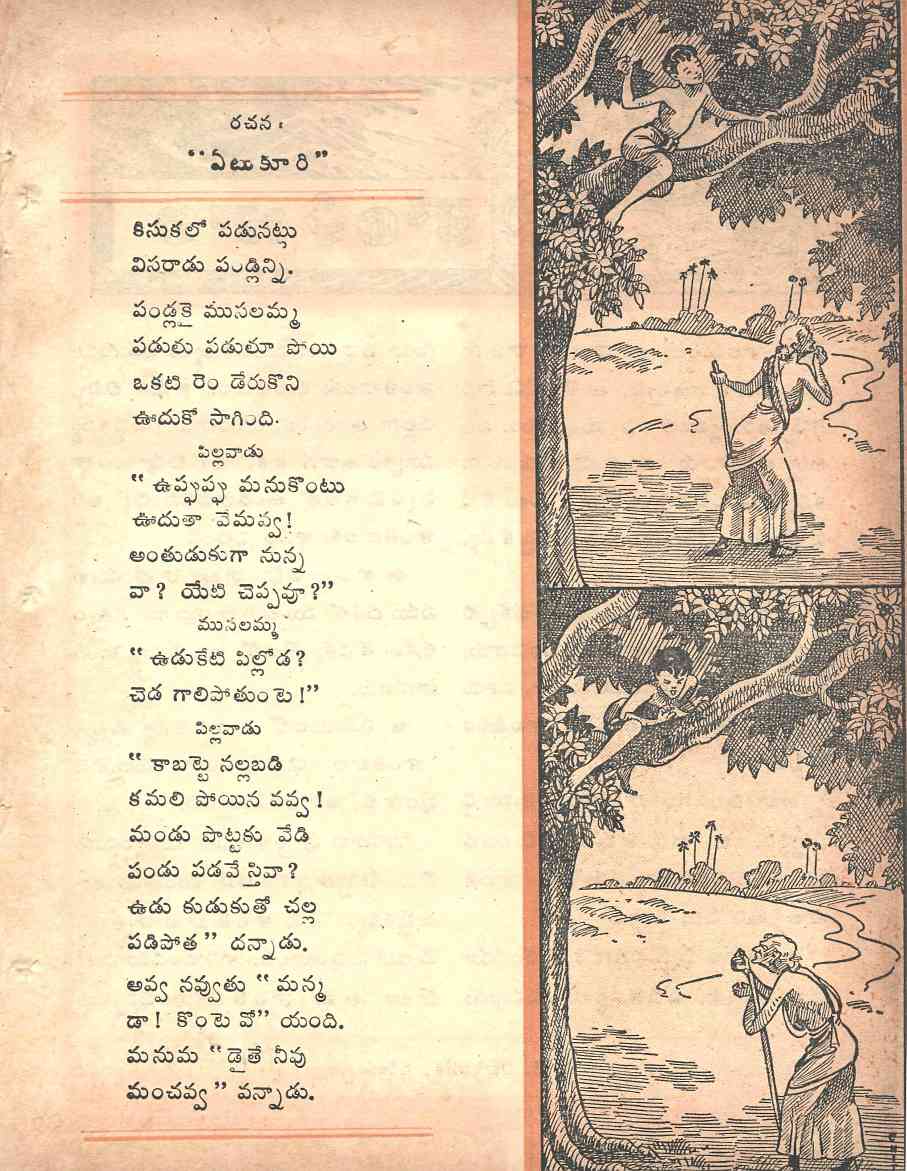 రచన :
“ఏటుకూరి”
కిసుకలో పడునట్లు
విసరాడు పండ్లిన్ని.
పండ్లకై ముసలమ్మ
పడులు పడులూ పోయి
ఒకటి రెం డేరుకొని
ఊదుకో సాగింది.
పిల్లవాడు
“ ఉప్ఫుప్ఫు మనుకొంటు
ఊదుతా వేమవ్వ!
అంతుడుకుగా నున్న
వా? యేటి చెప్పవూ?”
ముసలమ్మ
“ ఉడుకేటి పిల్లోడ?
చెడ గాలిపోతుంటె!”
పిల్లవాడు
“ కాబట్టె నల్లబడి
కమలి పోయిన వవ్వ!
మండు పొట్టకు వేడి
పండు పడవేస్తివా?
ఉడు కుడుకుతో చల్ల
పడిపోత” దన్నాడు.
అవ్వ నవ్వుతు “ మన్మ
డా! కొంటె వో” యంది.
మనుమ “డైతే నీవు
మంచవ్వ” వన్నాడు.